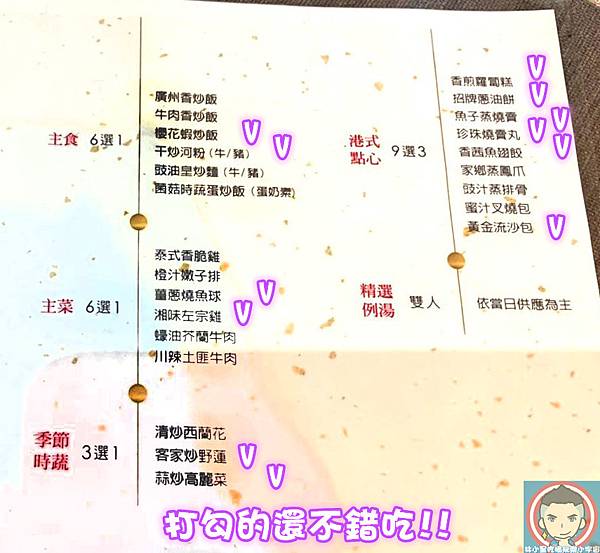 主食 6選1
廣州香炒飯
牛肉香炒飯
櫻花蝦炒飯 V
干炒河粉（牛/豬） V
豉油皇炒麵（牛/豬）
菌菇時蔬蛋炒飯（蛋奶素）
主菜 6選1
泰式香脆雞
橙汁嫩子排
薑蔥燒魚球 V
湘味左宗雞 V
蠔油芥蘭牛肉
川辣土匪牛肉
季節時蔬 3選1
清炒西蘭花
客家炒野蓮 V
蒜炒高麗菜 V
港式點心 9選3
香煎蘿蔔糕 V
招牌蔥油餅 V
魚子蒸燒賣 V
珍珠燒賣丸 V
香茜魚翅餃
家鄉蒸鳳爪
豉汁蒸排骨
蜜汁叉燒包
黃金流沙包 V
精選例湯 雙人
依當日供應為主
打勾的還不錯吃!!